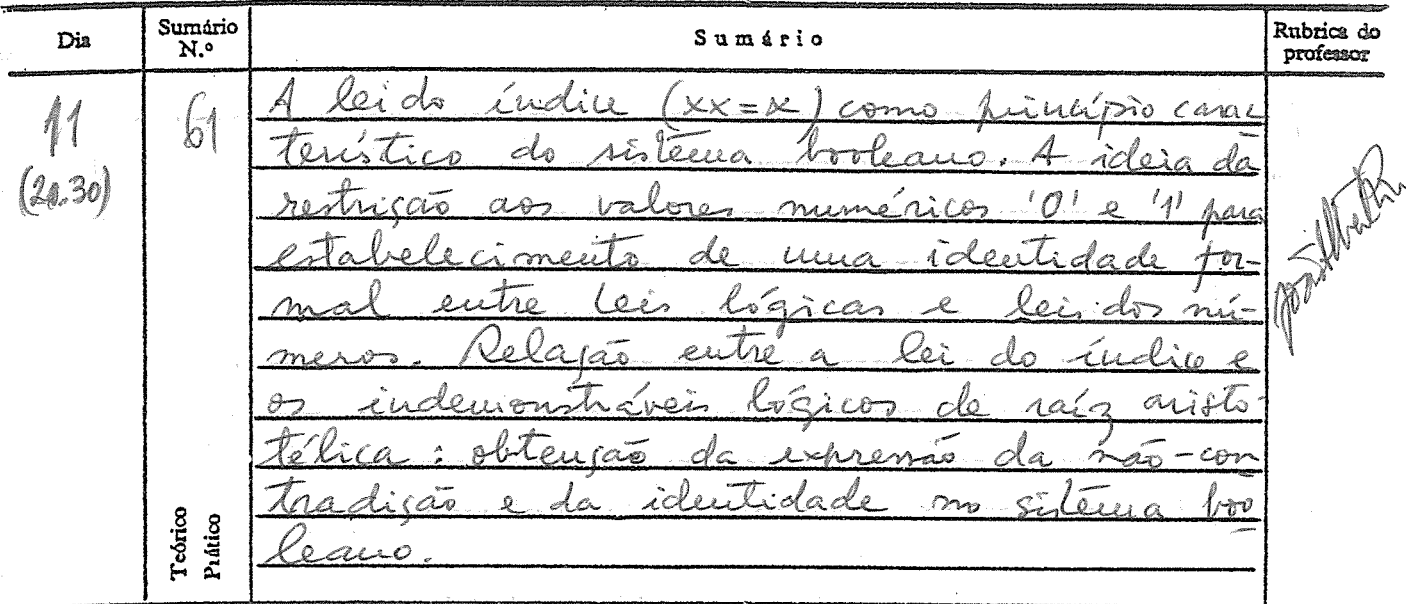 Dia Sumário N.º Sumário Rubrica do professor
11 (20.30) 61
A lei do índice (xx=x) como princípio carac
terístico do sistema booleano. A ideia da
restrição aos valores numéricos '0' e '1' para
estabelecimento de uma identidade for-
mal entre leis lógicas e leis dos nú-
meros. Relação entre a lei do índice e
os indemonstráveis lógicos de raíz aristo-
télica: obtenção da expressão da não-con
tradição e da identidade no sistema boo
leano.
Teórico
Prático